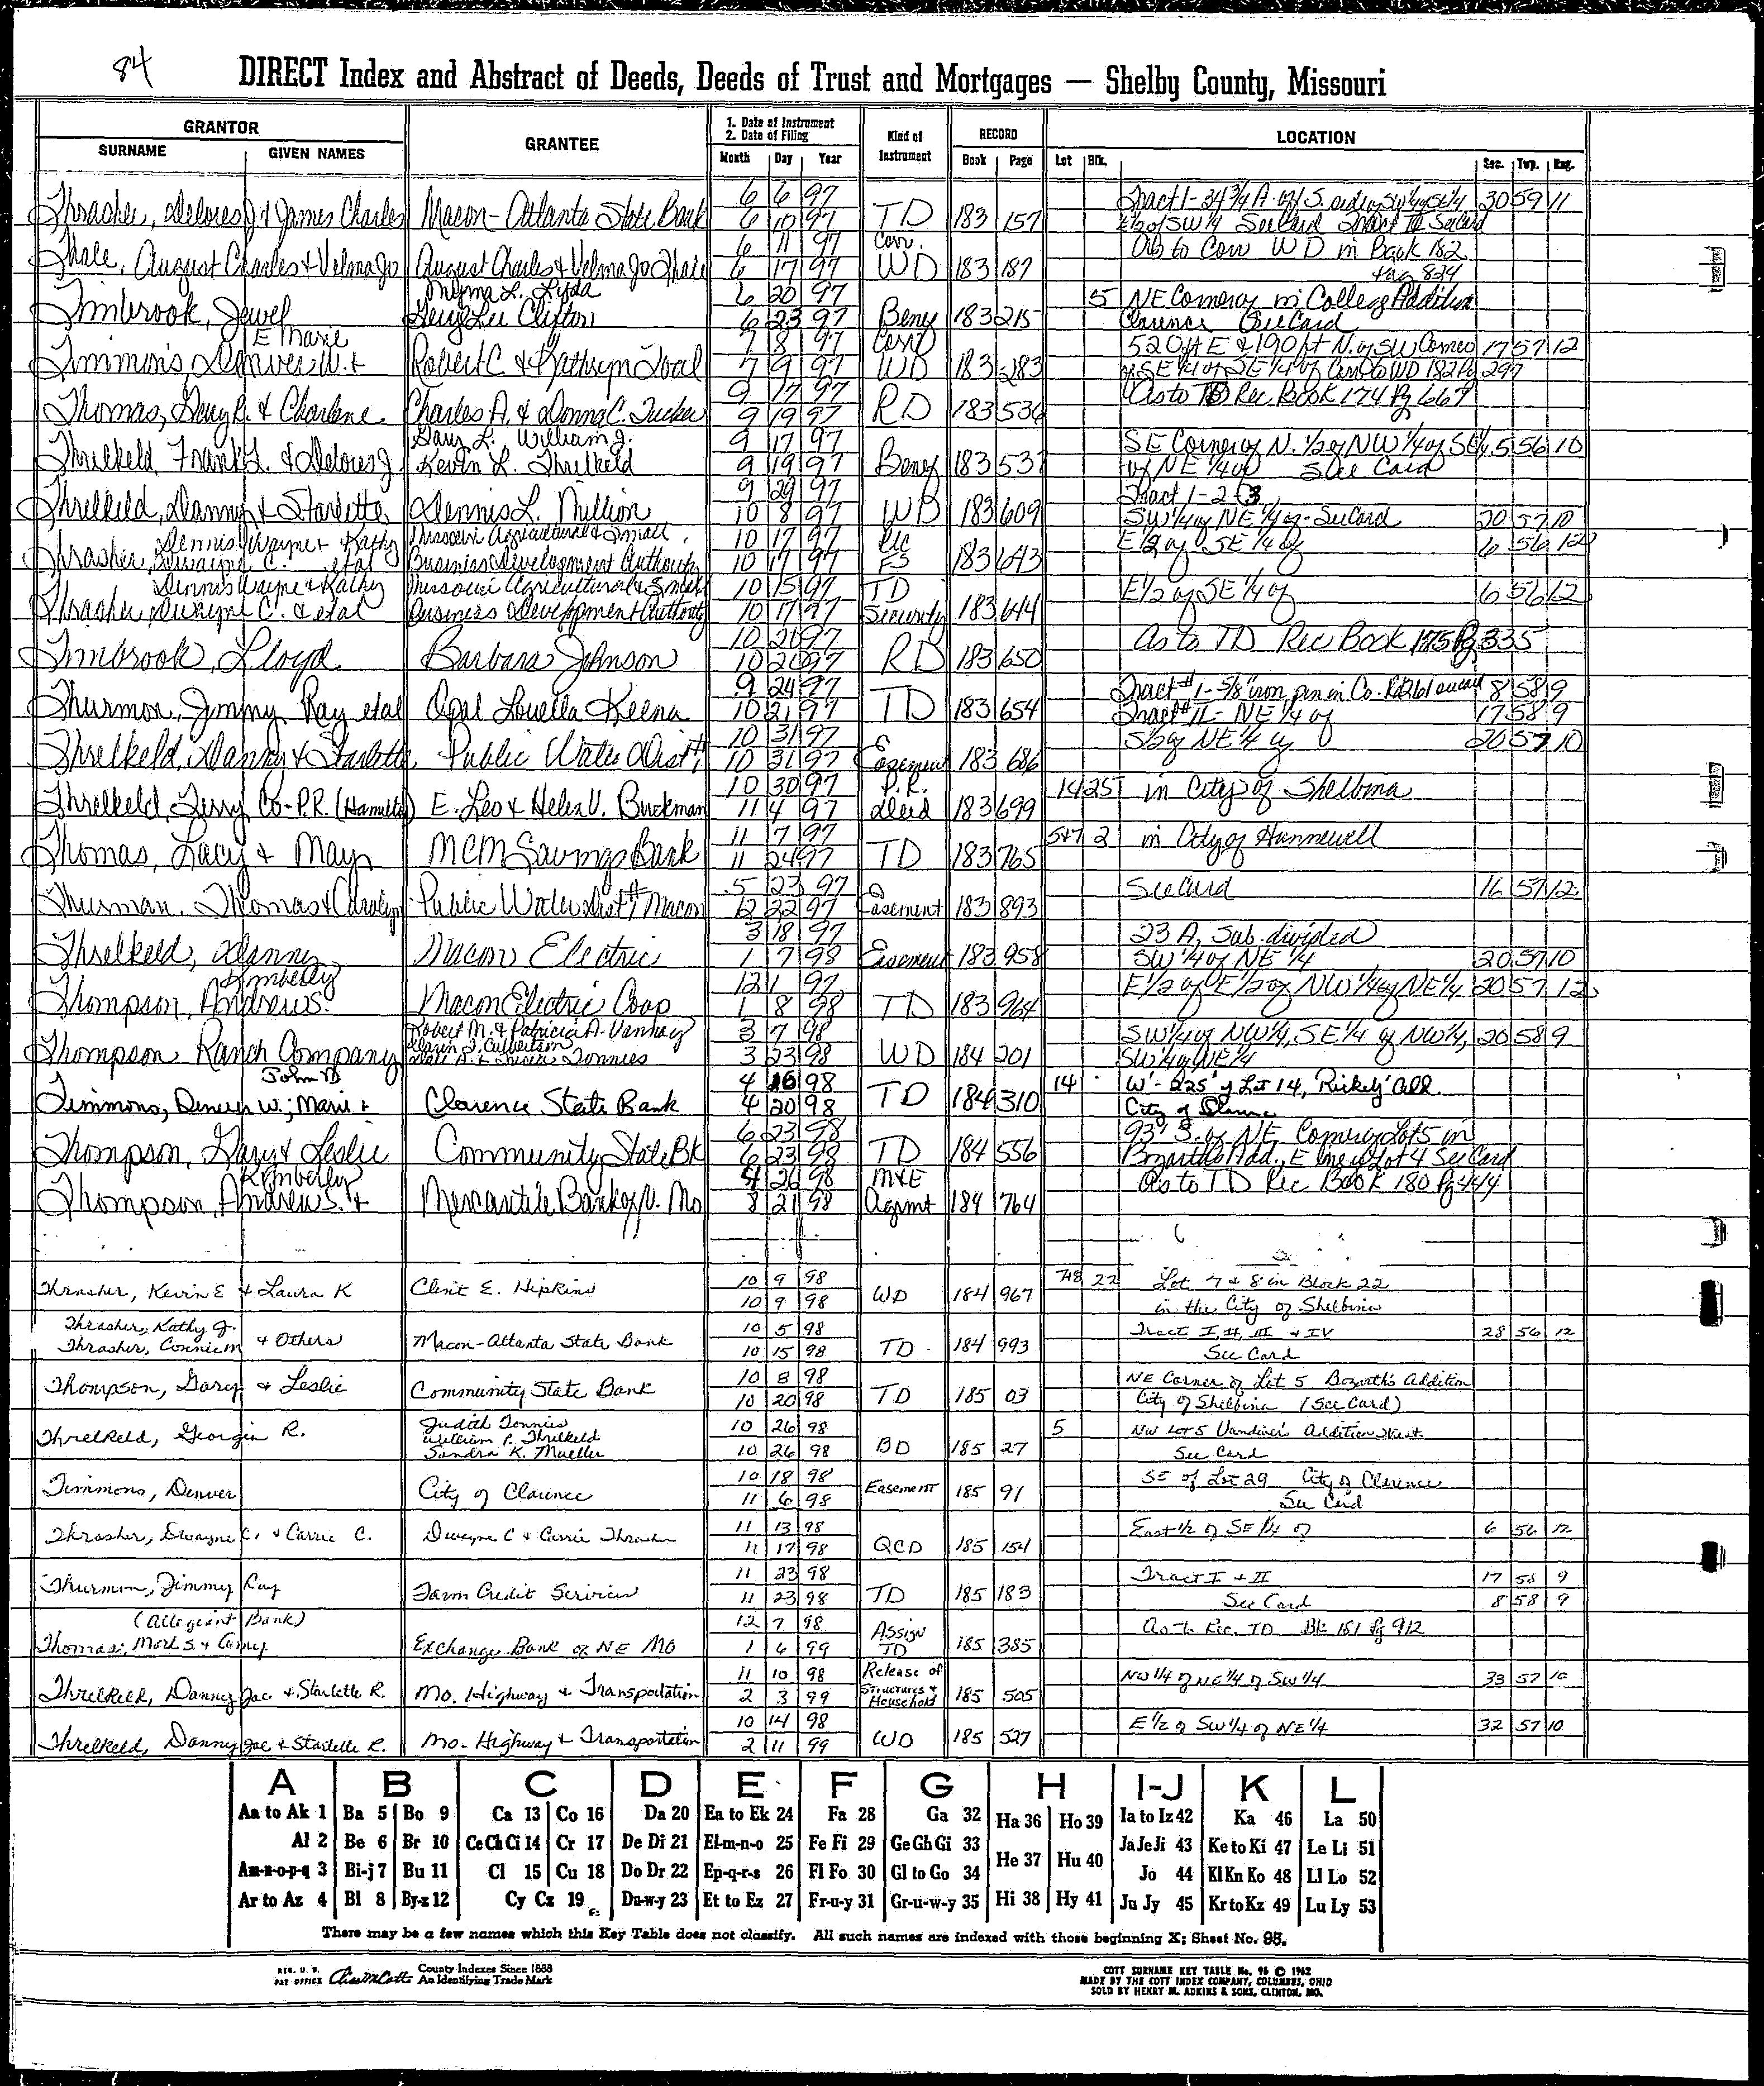 84
DIRECT Index and Abstract of Deeds, Deeds of Trust and Mortgages — Shelby County, Missouri
GRANTOR
SURNAME GIVEN NAMES
GRANTEE
1. Date of Instrument
2. Date of Filing
Month Day Year
Kind of Instrument
RECORD
Book Page
LOCATION
Lot Blk. Sec. Twp. Rng.
Thrasher, Delores J & James Charles Macon-Atlanta State Bank 6 6 97 TD 183 157 Tract 1- 34 3/4 A. of S. side of SW 1/4 of SE 1/4 30 59 11
6 10 97 E 1/2 of SW 1/4 See Card Tract III See Card
Thale, August Charles & Velma Jo August Charles & Velma Jo Thale 6 11 97 Corr. WD 183 187 As to Corr WD in Book 182
6 17 97 Pag 824
Timbrook, Jewel Myrna L. Lyda 6 20 97 Beny 183 215 5 NE Corner of in College Addition
Lee Clifton 6 23 97 Clarence See Card
Timmons, Denver W. & E Marie Robert C & Kathryn Toal 7 8 97 Corr WD 183 283 520 ft E & 190 ft N. of SW Corner 17 57 12
7 9 97 of SE 1/4 of SE 1/4 of Corr to WD 182 Pg 297
Thomas, Gary R. & Charlene Charles A. & Donna C. Tucker 9 17 97 RD 183 536 As to TD Rec Book 174 Pg 667
9 19 97
Threlkeld, Frank L. & Delores J Gary L. William J. 9 17 97 Beny 183 537 SE Corner of N. 1/2 of NW 1/4 of SE 1/4 5 56 10
Kevin L. Threlkeld 9 19 97 of NE 1/4 of See Card
Threlkeld, Danny & Starlette Dennis L. Million 9 29 97 WD 183 609 Tract 1-2-3
10 8 97 SW 1/4 of NE 1/4 of - See Card 20 57 10
Dennis Wayne & Kathy Missouri Agricultural & Small 10 17 97 FS 183 643 E 1/2 of SE 1/4 of 6 56 12
Thrasher, Dwayne C. etal Business Development Authority 10 17 97
Dennis Wayne & Kathy Missouri Agricultural & Small 10 15 97 TD E 1/2 of SE 1/4 of 6 56 12
Thrasher, Dwayne C. & etal Business Development Authority 10 17 97 Security 183 644
Timbrook, Lloyd Barbara Johnson 10 20 97 RD 183 650 As to TD Rec Book 175 Pg 335
10 20 97
Thurmon, Jimmy Ray etal Opal Louella Keena 9 24 97 TD 183 654 Tract #1 - 5/8" iron pin in Co. 8 58 9
10 21 97 Tract #II - NE 1/4 of 17 58 9
Threlkeld, Danny & Starlette Public Water Dist # 1 10 31 97 Easement 183 686 S 1/2 of NE 1/4 of 20 57 10
10 31 97
Threlkeld, Terry Co-P.R. (Hamilton) E. Leo & Helen V. Buckman 10 30 97 P.R. Deed 183 699 14 25 in City of Shelbina
11 4 97
Thomas, Lacy & Mary MCM Savings Bank 11 7 97 TD 183 765 5&7 2 in City of Hunnewell
11 24 97
Thurman, Thomas & Carolyn Public Water Dist #1 Macon 5 23 97 Easement 183 893 See Card 16 57 12
12 22 97
Threlkeld, Danny Macon Electric 3 18 97 Easement 183 958 23 A. Sub-divided
1 7 98 SW 1/4 of NE 1/4 20 57 10
Kimberly
Thompson, Andrew S. Macon Electric Coop 12 1 97 TD 183 964 E 1/2 of E 1/2 of NW 1/4 of NE 1/4 20 57 12
1 8 98
Thompson Ranch Company Robert M. & Patricia A. Vannoy 3 7 98 WD 184 201 SW 1/4 of NW 1/4, SE 1/4 of NW 1/4, 20 58 9
Culbertson Tonnies 3 23 98 SW 1/4 of NE 1/4
John D
Timmons, Denver W.; Marie & Clarence State Bank 4 16 98 TD 184 310 14 W'- 225' of Lot 14, 'Rickely' Add.
4 20 98 City of Clarence
Thompson, Gary & Leslie Community State Bk 6 23 98 TD 184 556 93' S. of NE Corner of Lot 5 in
6 23 98 Bozarths Add., E line of Lot 4 See Card
Kimberly
Thompson, Andrew S. & Mercantile Bank of N. Mo 4 26 98 M&E Agrmt 184 764 As to TD Rec Book 180 Pg 444
8 21 98
Thrasher, Kevin E & Laura K Clint E. Hipkins 10 9 98 WD 184 967 7&8 22 Lot 7 & 8 in Block 22
10 9 98 in the City of Shelbina
Thrasher, Kathy J.
Thrasher, Connie M & Others Macon-Atlanta State Bank 10 5 98 TD 184 993 Tract I, II, III & IV 28 56 12
10 15 98 See Card
Thompson, Gary & Leslie Community State Bank 10 8 98 TD 185 03 NE Corner of Lot 5 Bozarth's Addition
10 20 98 City of Shelbina (See Card)
Threlkeld, Georgia R. Judith Tonnies 10 26 98 BD 185 27 5 NW Lot 5 Vandiver's Addition West
William P. Threlkeld
Sandra K. Mueller 10 26 98 See Card
Timmons, Denver City of Clarence 10 18 98 Easement 185 91 SE of Lot 29 City of Clarence
11 6 98 See Card
Thrasher, Dwayne C. & Carrie C. Dwayne C & Carrie Thrasher 11 13 98 QCD 185 154 East 1/2 of SE 1/4 of 6 56 12
11 17 98
Thurmon, Jimmy Ray Farm Credit Services 11 23 98 TD 185 183 Tract I & II 17 58 9
11 23 98 See Card 8 58 9
(Allegiant Bank)
Thomas, Mark S & Exchange Bank of NE MO 12 7 98 Assign TD 185 385 As to Rec. TD Bk 181 Pg 912
1 6 99
Threlkeld, Danny Joe & Starlette R. Mo. Highway & Transportation 11 10 98 Release of Structures & Household 185 505 NW 1/4 of NE 1/4 of SW 1/4 33 57 10
2 3 99
Threlkeld, Danny Joe & Starlette R. Mo. Highway & Transportation 10 14 98 WD 185 527 E 1/2 of SW 1/4 of NE 1/4 32 57 10
2 11 99
A B C D E F G H I-J K L
Aa to Ak 1 Ba 5 Bo 9 Ca 13 Co 16 Da 20 Ea to Ek 24 Fa 28 Ga 32 Ha 36 Ho 39 Ia to Iz 42 Ka 46 La 50
Al 2 Be 6 Br 10 Ce Ch Ci 14 Cr 17 De Di 21 El-m-n-o 25 Fe Fi 29 Ge Gh Gi 33 He 37 Hu 40 Ja Je Ji 43 Ke to Ki 47 Le Li 51
Am-n-o-p-q 3 Bi-j 7 Bu 11 Cl 15 Cu 18 Do Dr 22 Ep-q-r-s 26 Fl Fo 30 Gl to Go 34 Jo 44 Kl Kn Ko 48 Ll Lo 52
Ar to Az 4 Bl 8 By-z 12 Cy Cz 19 Du-w-y 23 Et to Ez 27 Fr-u-y 31 Gr-u-w-y 35 Hi 38 Hy 41 Ju Jy 45 Kr to Kz 49 Lu Ly 53
There may be a few names which this Key Table does not classify. All such names are indexed with those beginning X; Sheet No. 95.
REG. U. S. PAT OFFICE County Indexes Since 1888 An Identifying Trade Mark
COTT SURNAME KEY TABLE No. 96 © 1962
MADE BY THE COTT INDEX COMPANY, COLUMBUS, OHIO
SOLD BY HENRY M. ADKINS & SONS, CLINTON, MO.